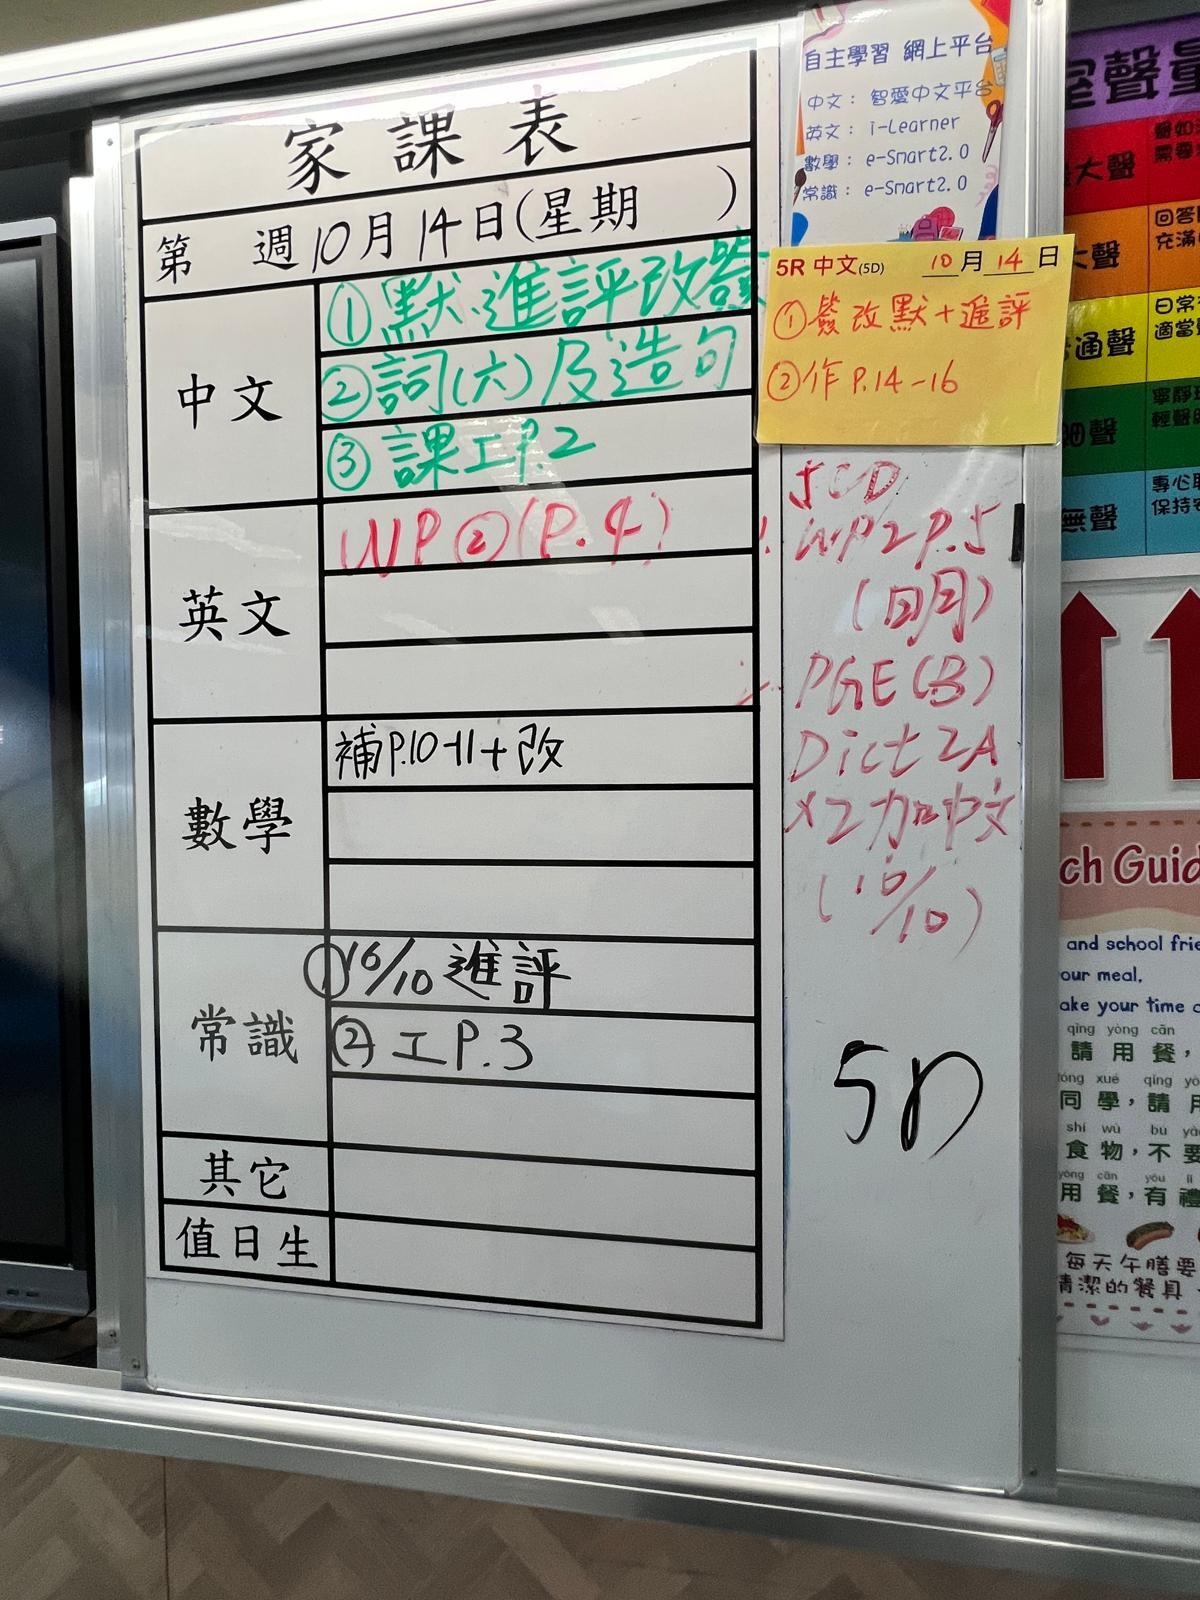 家課表
第 週10月14日(星期 )
中文
①默.進評改簽
②詞(六)及造句
③課工P.2
英文
WP②(P.4)
數學
補P.10-11+改
常識
①16/10進評
②工P.3
其它
值日生
自主學習 網上平台
中文： 智愛中文平台
英文： i-Learner
數學： e-Smart2.0
常識： e-Smart2.0
5R 中文(5D) 10月14日
①簽改默+進評
②作P.14-16
5CD
WP2 P.5
PGE(B)
Dict 2A
x2 加中文
(16/10)
5D
室聲量
大聲
回答
充滿
大聲
日常
適當
通聲
寧靜
輕聲
細聲
專心
保持
無聲
ch Guid
and school frie
our meal,
ake your time
qǐng yòng cān
請用餐，
tóng xué qǐng yò
同學，請用
shí wù bú yà
食物，不要
yòng cān yǒu lǐ
用餐，有禮
每天午膳要
清潔的餐具